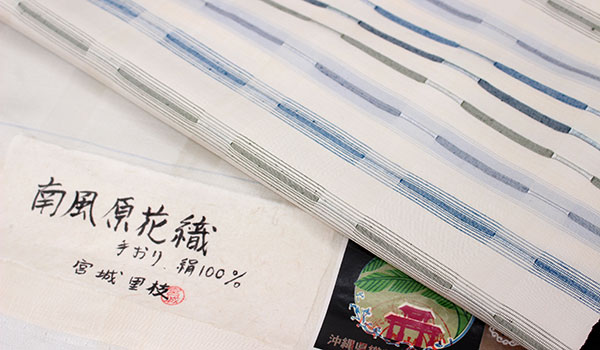 南風原花織
手おり.絹100%
宮城里枝
沖縄県